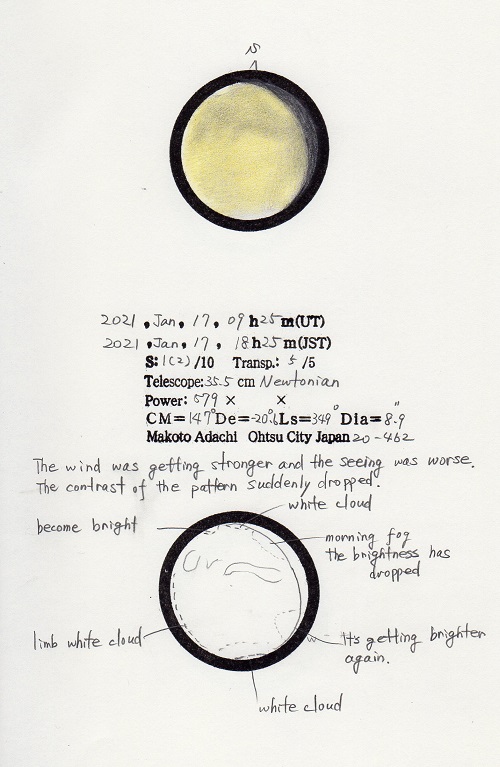 S
2021 , Jan, 17, 09 h25 m(UT)
2021 , Jan, 17, 18 h25 m(JST)
S: 1(2) /10 Transp.: 5 /5
Telescope: 35.5 cm Newtonian
Power: 579 × ×
CM=147° De=-20.6° Ls=349° Dia=8.9"
Makoto Adachi Ohtsu City Japan 20-462
The wind was getting stronger and the seeing was worse.
The contrast of the pattern suddenly dropped.
white cloud
become bright
morning fog
the brightness has
dropped
limb white cloud
It's getting brighter
again.
white cloud